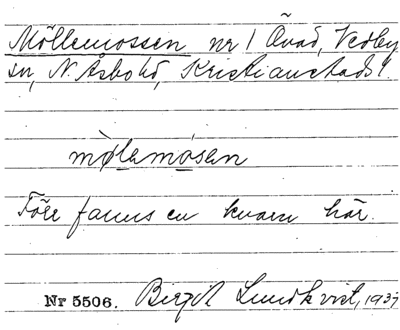 Möllemossen nr 1 Åvad, Vedby
sn, N. Åsbo hd, Kristianstads l
mølemosen
Förr fanns en kvarn här.
Nr 5506. Birgit Lundkvist, 1937